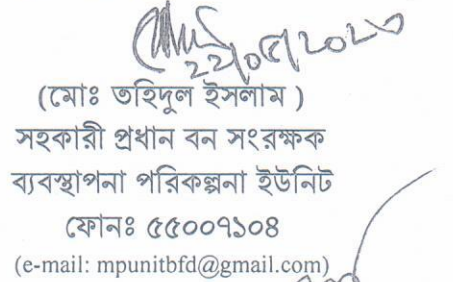 ২২/০৫/২০২৩
(মোঃ তহিদুল ইসলাম )
সহকারী প্রধান বন সংরক্ষক
ব্যবস্থাপনা পরিকল্পনা ইউনিট
ফোনঃ ৫৫০০৭১০৪
(e-mail: mpunitbfd@gmail.com)